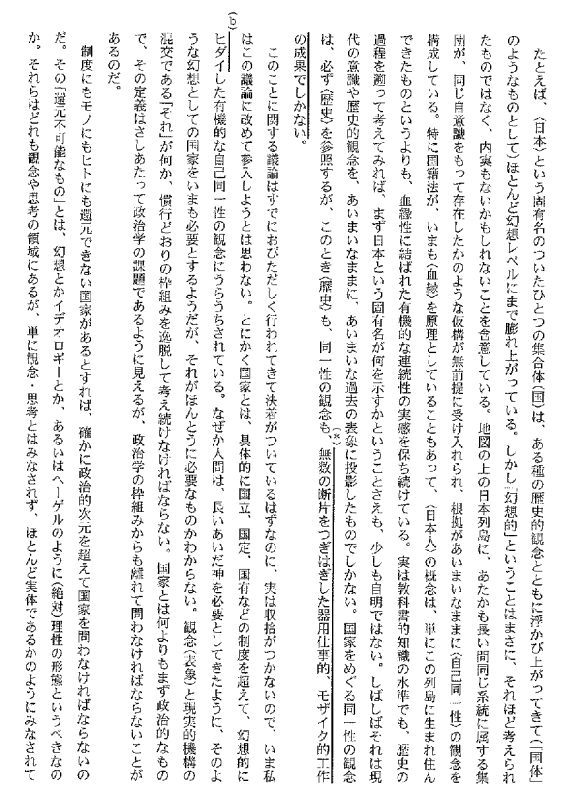 たとえば、〈日本〉という固有名のついたひとつの集合体(国)は、ある種の歴史的観念とともに浮かび上がってきて(「国体」
のようなものとして)ほとんど幻想レベルにまで膨れ上がっている。しかし「幻想的」ということはまさに、それほど考えられ
たものではなく、内実もないかもしれないことを含意している。地図の上の日本列島に、あたかも長い間同じ系統に属する集
団が、同じ自意識をもって存在したかのような仮構が無前提に受け入れられ、根拠があいまいなままに〈自己同一性〉の観念を
構成している。特に国籍法が、いまも〈血縁〉を原理としていることもあって、〈日本人〉の概念は、単にこの列島に生まれ住ん
できたものというよりも、血縁性に結ばれた有機的な連続性の実感を保ち続けている。実は教科書的知識の水準でも、歴史の
過程を遡って考えてみれば、まず日本という固有名が何を示すかということさえも、少しも自明ではない。しばしばそれは現
代の意識や歴史的観念を、あいまいなままに、あいまいな過去の表象に投影したものでしかない。国家をめぐる同一性の観念
は、必ず〈歴史〉を参照するが、このとき〈歴史〉も、同一性の観念も、(※)無数の断片をつぎはぎした器用仕事的、モザイク的工作
の成果でしかない。
このことに関する議論はすでにおびただしく行われてきて決着がついているはずなのに、実は収拾がつかないので、いま私
はこの議論に改めて参入しようとは思わない。とにかく国家とは、具体的に国立、国定、国有などの制度を超えて、幻想的に
(b)ヒダイした有機的な自己同一性の観念にうらうちされている。なぜか人間は、長いあいだ神を必要としてきたように、そのよ
うな幻想としての国家をいまも必要とするようだが、それがほんとうに必要なものかわからない。観念(表象)と現実的機構の
混交である「それ」が何か、慣行どおりの枠組みを逸脱して考え続けなければならない。国家とは何よりもまず政治的なもの
で、その定義はさしあたって政治学の課題であるように見えるが、政治学の枠組みからも離れて問わなければならないことが
あるのだ。
制度にもモノにもヒトにも還元できない国家があるとすれば、確かに政治的次元を超えて国家を問わなければならないの
だ。その「還元不可能なもの」とは、幻想とかイデオロギーとか、あるいはヘーゲルのように〈絶対〉理性の形態というべきなの
か。それらはどれも観念や思考の領域にあるが、単に観念・思考とはみなされず、ほとんど実体であるかのようにみなされて